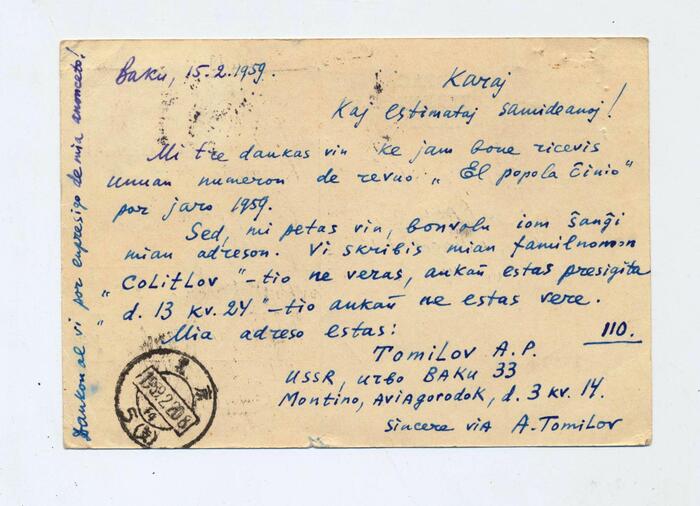 Baku, 15.2.1959.
Karaj
Kaj estimataj samideanoj!
Mi tre dankas vin ke jam bone ricevis
unuan numeron de revuo „El popola Ĉinio"
por jaro 1959.
Sed, mi petas vin, bonvolu iom ŝanĝi
mian adreson. Vi skribis mian familnomon
„COLITLOV" - tio ne veras, ankaŭ estas presigita
„d. 13 kv. 24" - tio ankaŭ ne estas vere.
Mia adreso estas:
110.
TOMILOV A.P.
USSR, urbo BAKU 33
Montino, AviAgorodok, d. 3 kv. 14.
Sincere viA A. TOMILOV
Dankon al vi por enpresigo de mia anonceto!